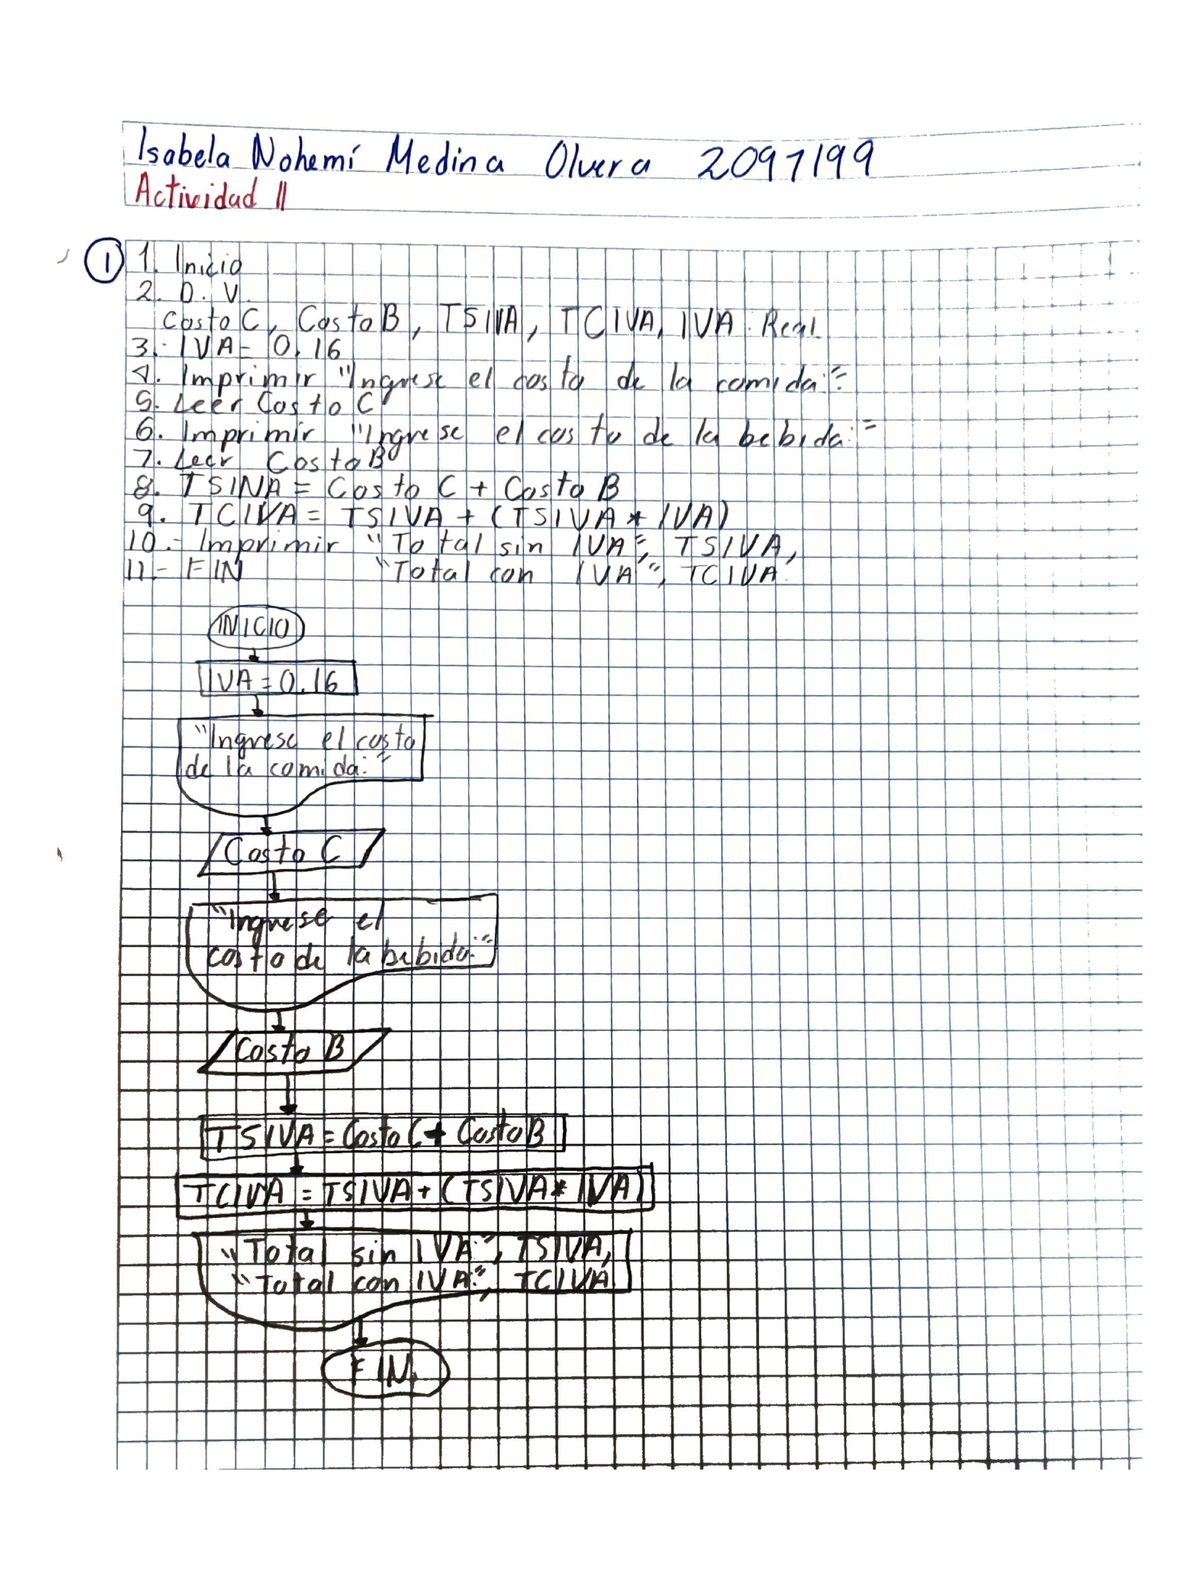 Isabela Nohemí Medina Olvera 2097199
Actividad 11
① 1. Inicio
2. D. V.
Costo C, Costo B, TSIVA, TCIVA, IVA: Real
3.- IVA= 0.16
4. Imprimir "Ingrese el costo de la comida:"
5. Leer Costo C
6. Imprimir "Ingrese el costo de la bebida:"
7. Leer Costo B
8. TSIVA = Costo C + Costo B
9. TCIVA = TSIVA + (TSIVA * IVA)
10.- Imprimir "Total sin IVA:", TSIVA,
11.- FIN "Total con IVA:", TCIVA.
INICIO
IVA = 0.16
"Ingrese el costo
de la comida:"
Costo C
"Ingrese el
costo de la bebida:"
Costo B
TSIVA = Costo C + Costo B
TCIVA = TSIVA + (TSIVA * IVA)
"Total sin IVA:", TSIVA,
"Total con IVA:", TCIVA.
FIN